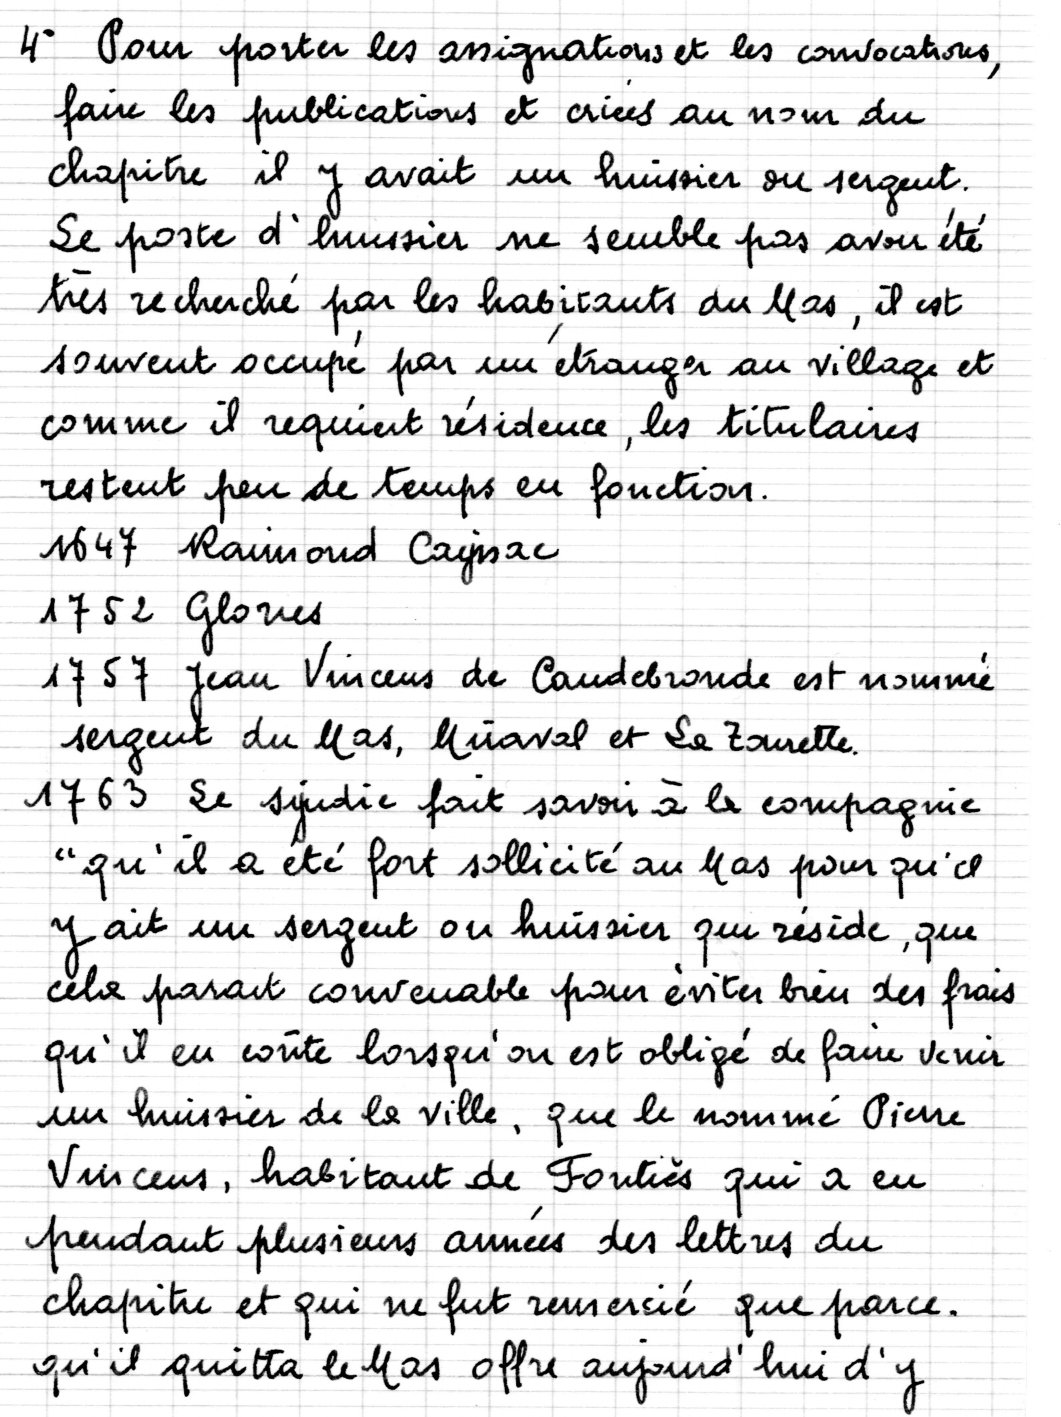 4° Pour porter les assignations et les convocations,
faire les publications et criées au nom du
chapitre il y avait un huissier ou sergent.
Le poste d'huissier ne semble pas avoir été
très recherché par les habitants du Mas, il est
souvent occupé par un étranger au village et
comme il requiert résidence, les titulaires
restent peu de temps en fonction.
1647 Raimond Cayssac
1752 Glories
1757 Jean Vincens de Caudebronde est nommé
sergent du Mas, Miraval et La Tourette.
1763 Le syndic fait savoir à la compagnie
"qu'il a été fort sollicité au Mas pour qu'il
y ait un sergent ou huissier qui réside, que
cela parait convenable pour éviter bien des frais
qu'il en coûte lorsqu'on est obligé de faire venir
un huissier de la ville, que le nommé Pierre
Vincens, habitant de Fontiès qui a eu
pendant plusieurs années des lettres du
chapitre et qui ne fut remercié que parce.
qu'il quitta le Mas offre aujourd'hui d'y